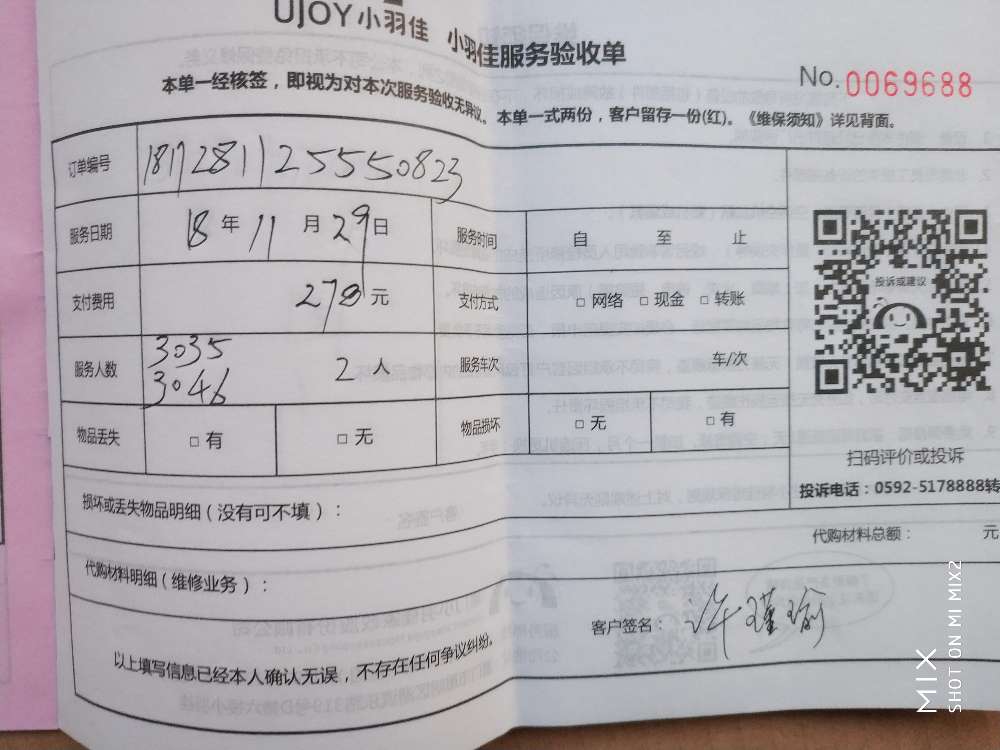 UJOY小羽佳 小羽佳服务验收单
No. 0069688
本单一经核签，即视为对本次服务验收无异议。本单一式两份，客户留存一份(红)。《维保须知》详见背面。
订单编号 1811281125550823
服务日期 18年11月29日 服务时间 自 至 止
支付费用 278元 支付方式 □ 网络 □ 现金 □ 转账
投诉或建议
服务人数 3035 3046 2人 服务车次 车/次
物品丢失 □ 有 □ 无 物品损坏 □ 无 □ 有
扫码评价或投诉
投诉电话：0592-5178888转
损坏或丢失物品明细（没有可不填）：
代购材料总额： 元
代购材料明细（维修业务）：
客户签名： 许瑾瑜
以上填写信息已经本人确认无误，不存在任何争议纠纷。
MIX
SHOT ON MI MIX2